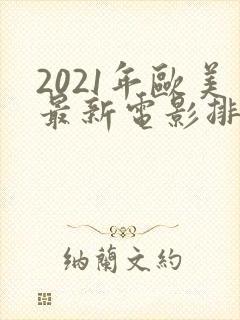 2021年歐美
最新電影排
納蘭文約